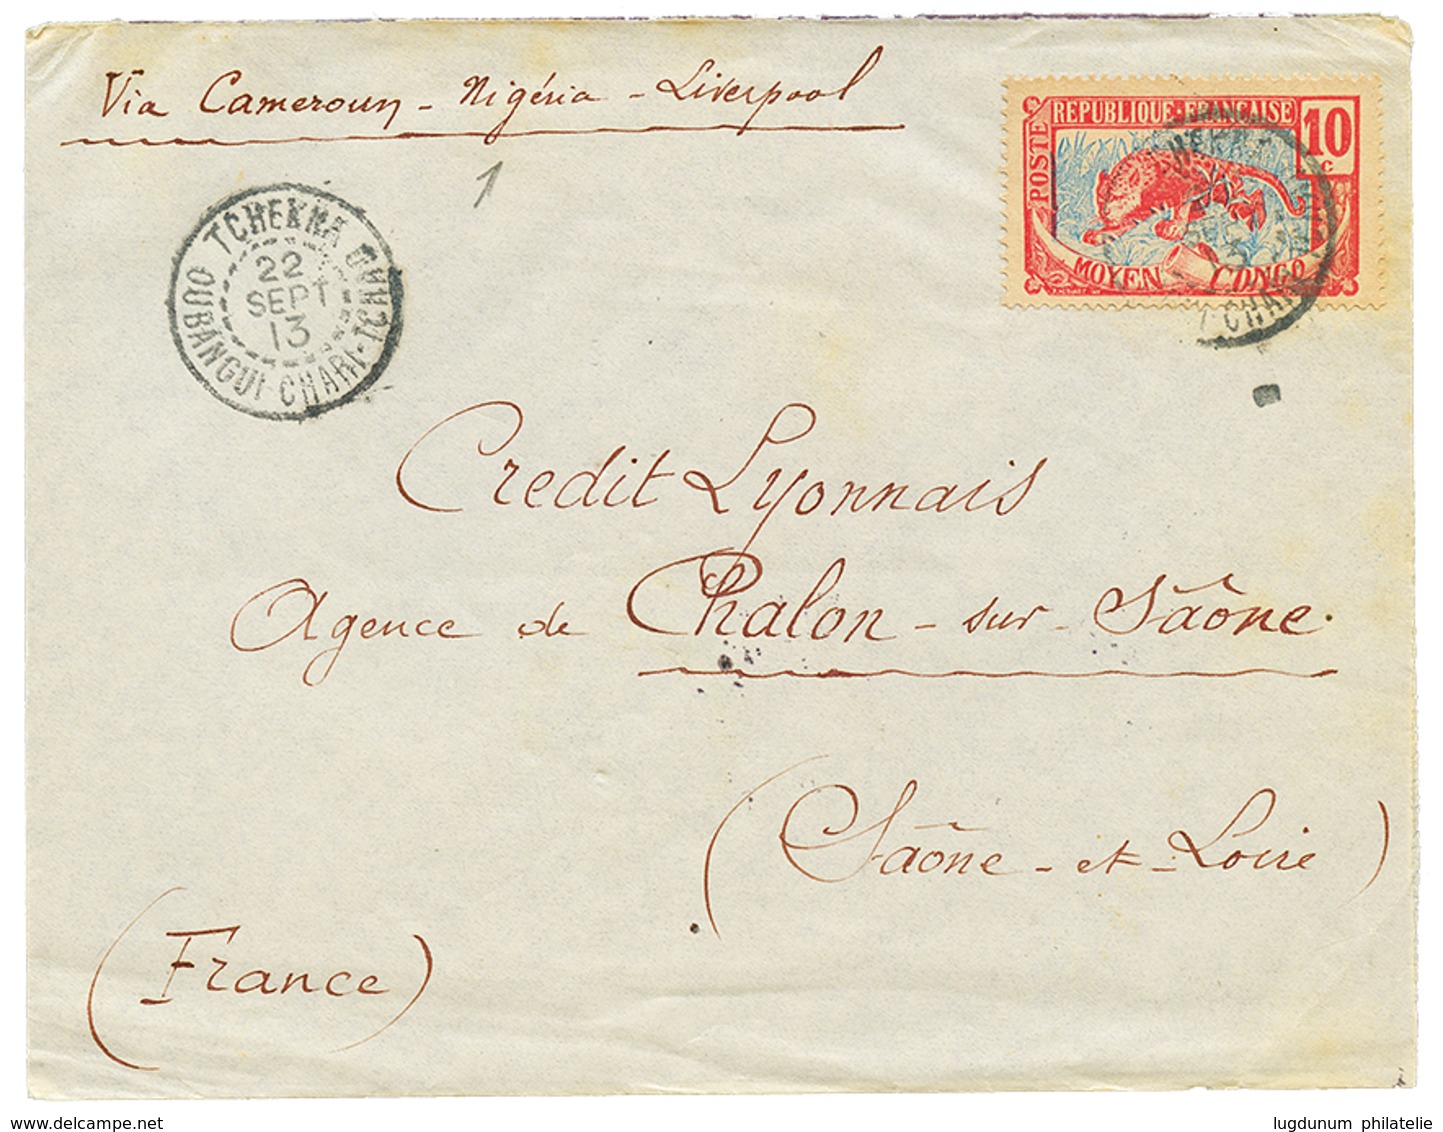 Via Cameroun - Nigéria - Liverpool
1
REPUBLIQUE FRANÇAISE
10
c
POSTE
MOYEN CONGO
TCHEKNA
22
SEPT
13
OUBANGUI-CHARI-TCHAD
Credit Lyonnais
Agence de Chalon-sur-Saône.
(Saône-et-Loire)
(France)
www.delcampe.net
lugdunum philatelie